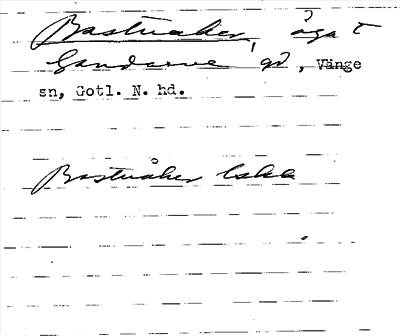 Bastuåker, äga t
Gandarve gd, Vänge
sn, Gotl. N. hd.
Bastuåker